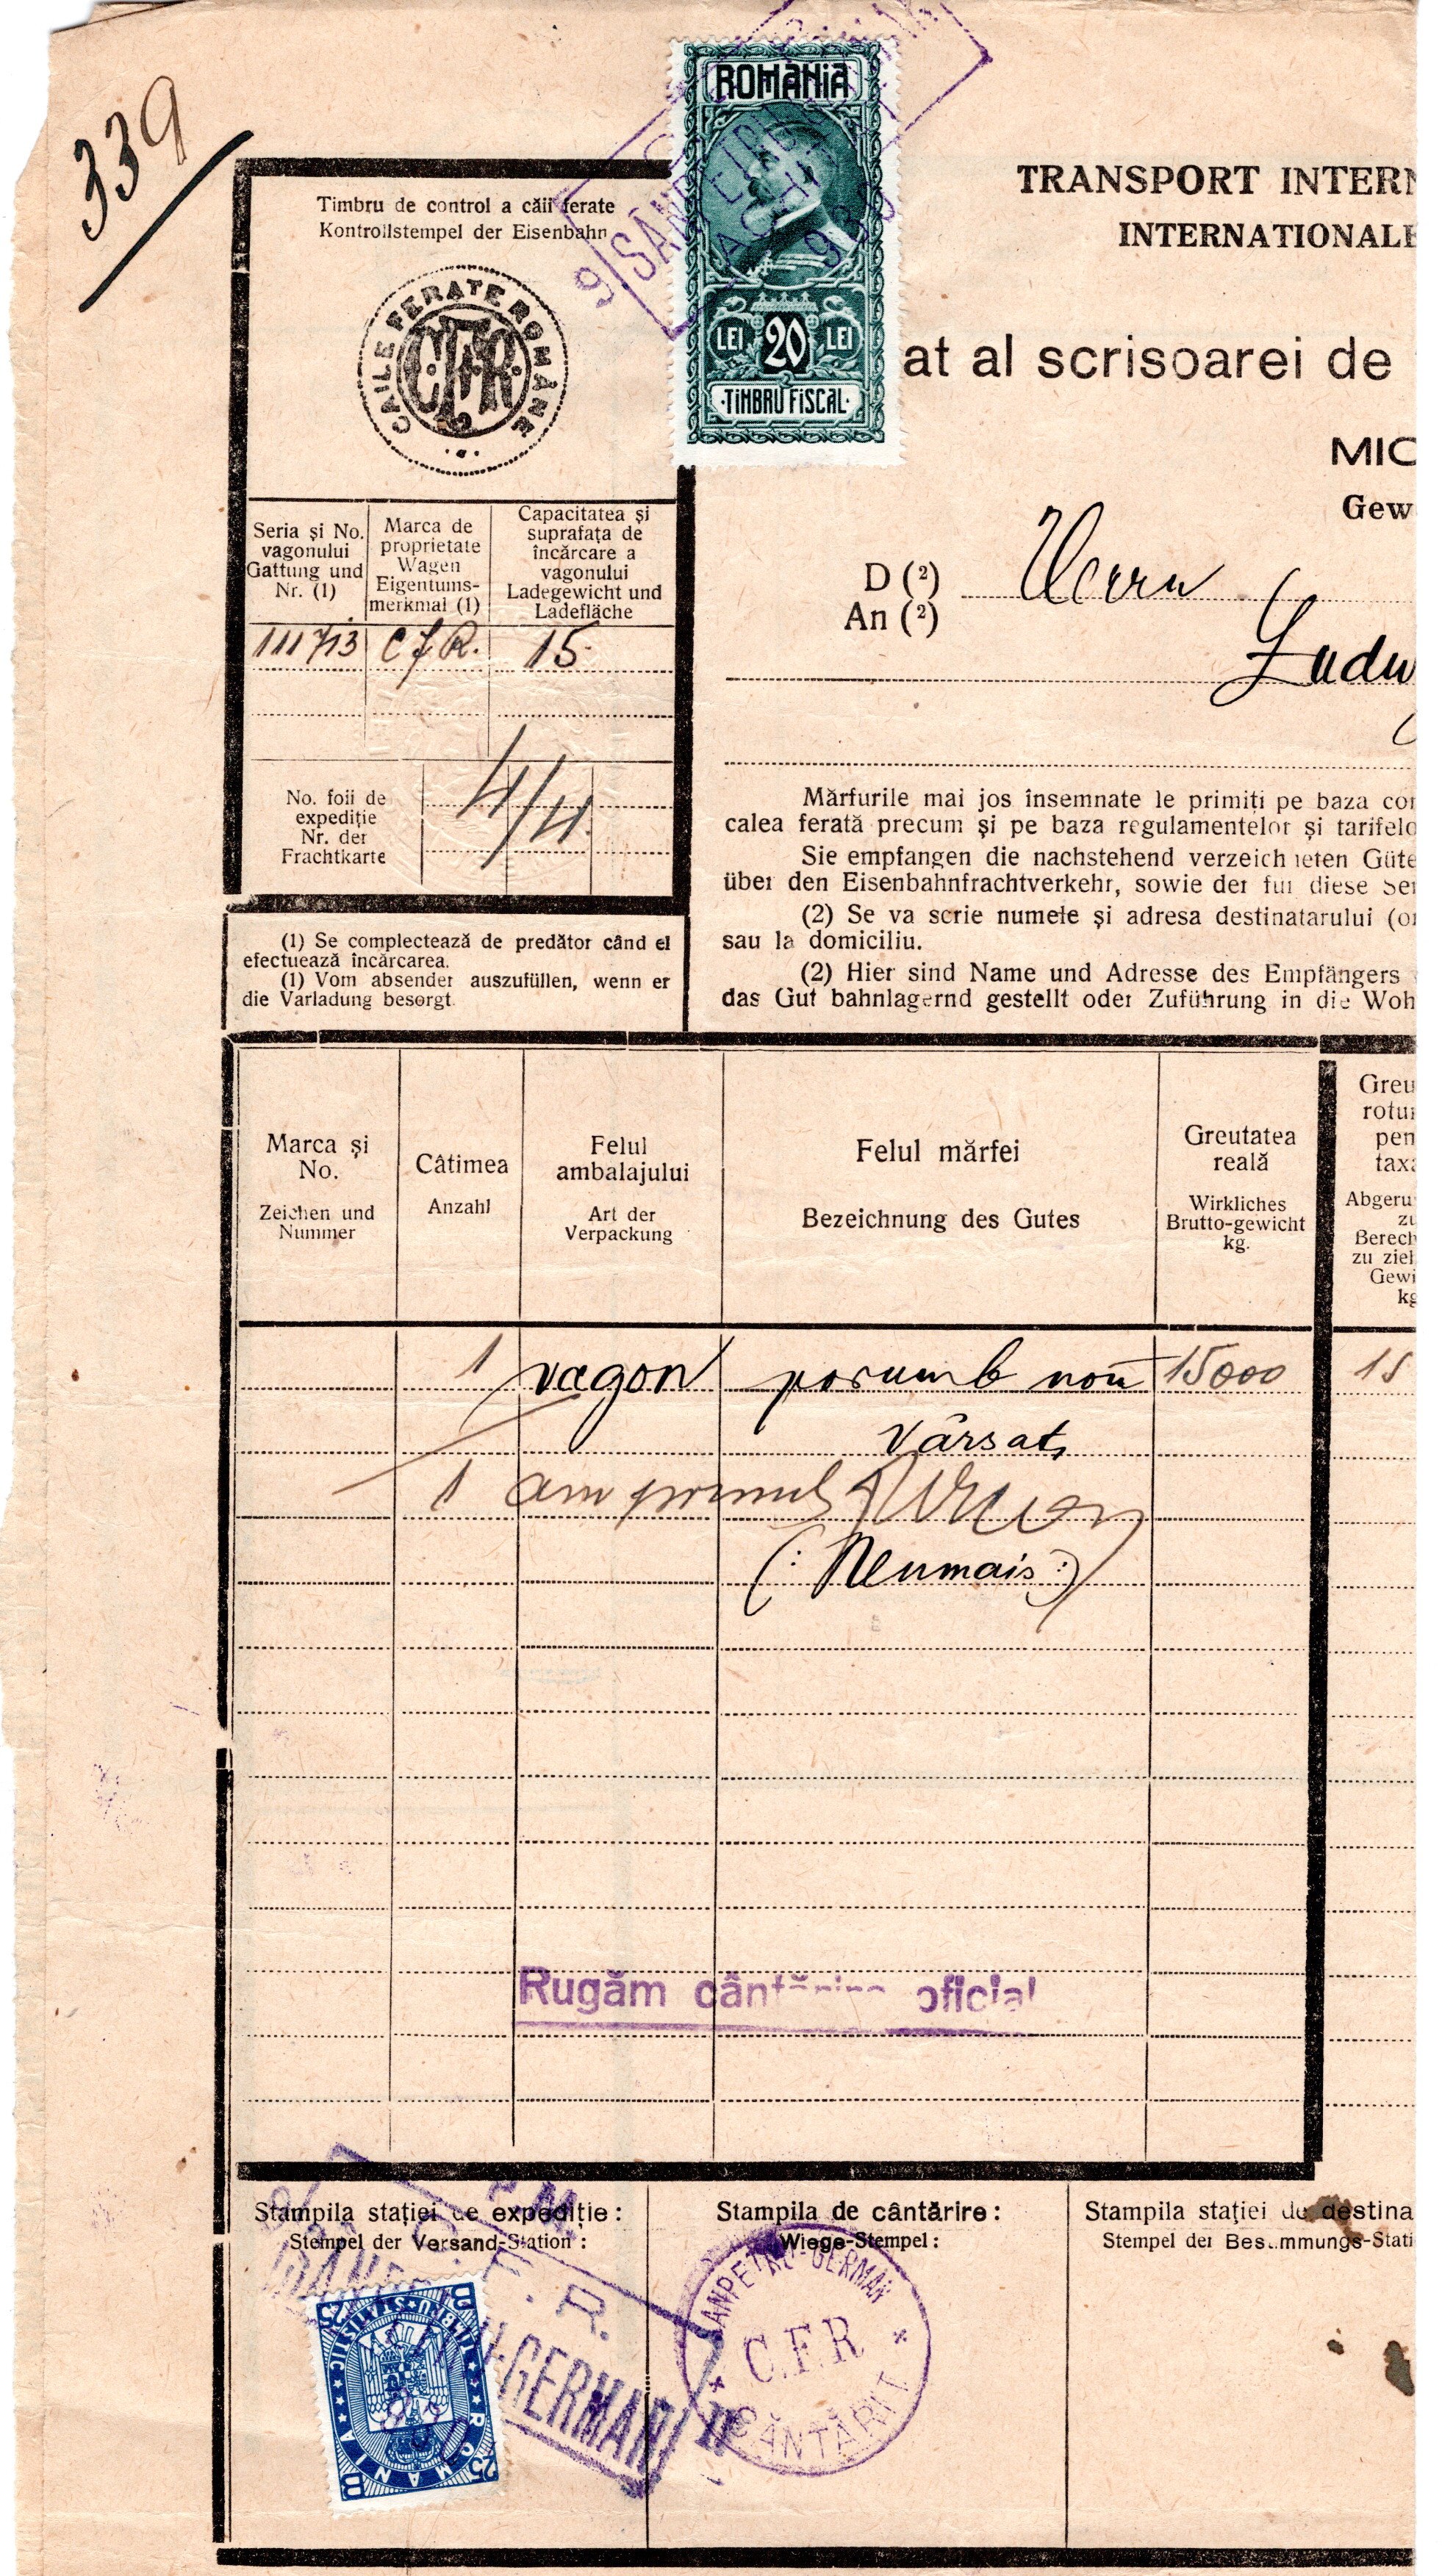 339
ROMANIA
LEI 20 LEI
TIMBRU FISCAL
TRANSPORT INTERN
INTERNATIONALE
Timbru de control a căii ferate
Kontrollstempel der Eisenbahn
CAILE FERATE ROMÂNE
CFR
at al scrisoarei de
MIC
Gew
Seria și No. vagonului
Gattung und Nr. (1)
Marca de proprietate
Wagen Eigentums-merkmal (1)
Capacitatea și suprafața de încărcare a vagonului
Ladegewicht und Ladefläche
111713 CFR. 15
D (²) Herrn
An (²)
Ludw
No. foii de expediție
Nr. der Frachtkarte
4/4
Mărfurile mai jos însemnate le primiți pe baza con
calea ferată precum și pe baza regulamentelor și tarifelo
Sie empfangen die nachstehend verzeichneten Güte
über den Eisenbahnfrachtverkehr, sowie der für diese Sen
(2) Se va scrie numele și adresa destinatarului (or
sau la domiciliu.
(2) Hier sind Name und Adresse des Empfängers
das Gut bahnlagernd gestellt oder Zuführung in die Woh
(1) Se complectează de predător când el
efectuează încărcarea.
(1) Vom absender auszufüllen, wenn er
die Varladung besorgt.
Marca și No.
Zeichen und Nummer
Câtimea
Anzahl
Felul ambalajului
Art der Verpackung
Felul mărfei
Bezeichnung des Gutes
Greutatea reală
Wirkliches Brutto-gewicht kg.
Greu
rotu
pen
tax
Abgeru
zu
Berech
zu ziel
Gewi
kg
1 vagon porumb nou 15000 15
vărsat
1 am primit
(: Neumais :)
Rugăm cântărire oficial
Stampila stației de expediție:
Stempel der Versand-Station:
Stampila de cântărire:
Wiege-Stempel:
Stampila stației de destina
Stempel der Bestimmungs-Stati
C.F.R.
GERMAN
TIMBRU STATISTIC
ROMANIA
25 B
SANPETRU-GERMAN
C.F.R
CÂNTĂRIT